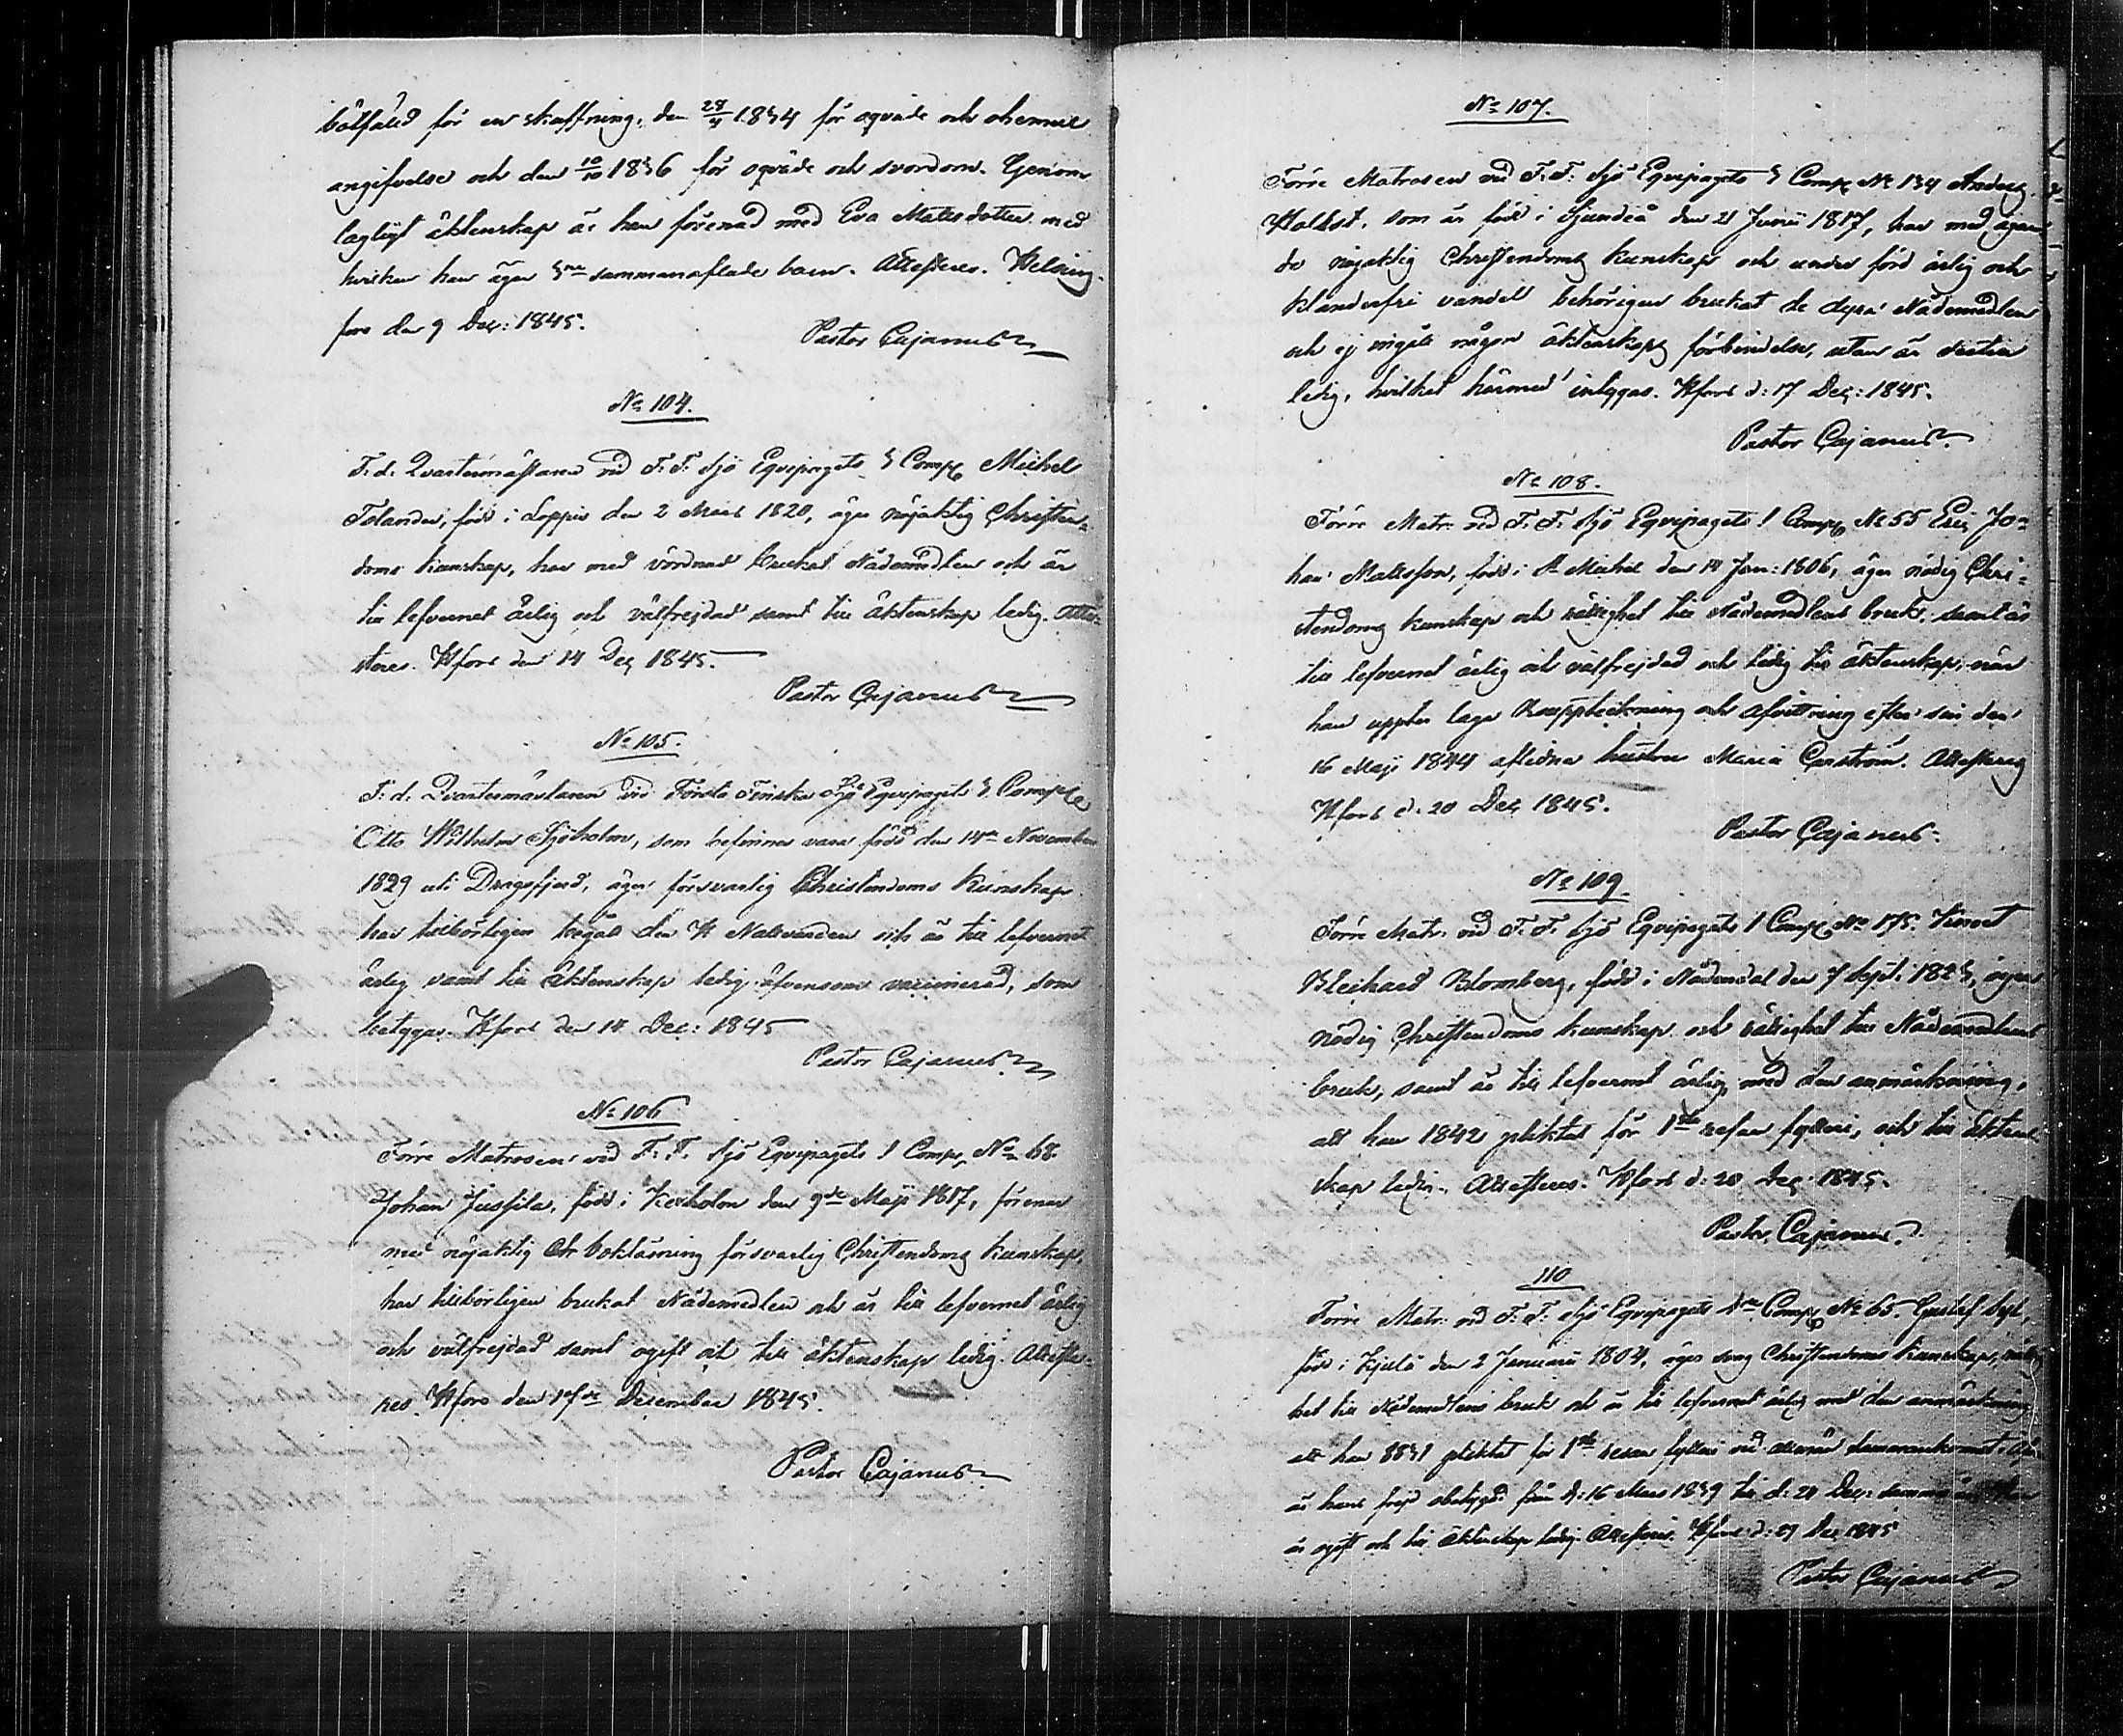 bötfäld för en skaffning, den 28/4 1834 för oqväde och ohemul
angifvelse och den 10/10 1836 för oqväde och svordom. Genom
lagligt äktenskap är han förenad med Eva Matts dotter med
hvilken han äger 3ne sammanaflade barn. Attesteras. Helsing-
fors den 9 Dec: 1845.
Pastor Cajanus
No 104.
F. d. Qvartermästaren vid F. F. Sjö Eqvipagets 3 Comp. Michel
Tolander, född i Loppis den 2 Mars 1820, äger nöjaktig Christen-
doms kunskap, har med vördnad brukat Nådemedlen och är
till lefvernet ärlig och välfrejdad samt till äktenskap ledig. Atte-
steras. Hfors den 14 Dec 1845.
Pastor Cajanus
No 105.
F. d. Qvartermästaren vid Första Finska Sjö Eqvipagets 3 Comp.
Otto Wilhelm Sjöholm, som befinnes vara född den 14de November
1829 uti Dragsfjerd, äger försvarlig Christendoms kunskap
har tillbörligen begått den H Nattvarden och är till lefvernet
ärlig samt till äktenskap ledig äfvensom vaccinerad, som
betygas. Hfors den 14 Dec: 1845
Pastor Cajanus
No 106
Förre Matrosen vid F. F. Sjö Eqvipagets 1 Comp. No 68.
Johan Jussila, född i Kexholm den 9de Maji 1817, förenar
med nöjaktig och bokläsning försvarlig Christendoms kunskap,
har tillbörligen brukat Nådemedlen och är till lefvernet ärlig
och välfrejdad samt ogift och till äktenskap ledig. Atteste-
ras. Hfors den 17de December 1845.
Pastor Cajanus
No 107.
Förre Matrosen vid F. F. Sjö Eqvipagets 3 Comp No 134 Anders
som är född i Sjundeå den 21 Junii 1817, har med ägan-
de nöjaktig Christendoms kunskap och under förd ärlig och
klanderfri vandel behörigen brukat de dyra Nådemedlen
och ej ingått någon äktenskaps förbindelse, utan är dertill
ledig, hvilket härmed intygas. Hfors d: 17 Dec: 1845.
Pastor Cajanus
No 108.
Förre Matr. vid F. F. Sjö Eqvipagets 1 Comp No 55 Eric Jo-
han Mattsson, född i St Michel den 14 Jan: 1806, äger nödig Chri-
stendoms kunskap och rättighet till Nådemedlens bruk, samt är
till lefvernet ärlig och välfrejdad och ledig till äktenskap, när
han uppter laga Bouppteckning och afvittring efter sin den
16 Maji 1844 aflidna hustru Maria. Attesteras
Hfors d. 20 Dec 1845.
Pastor Cajanus
No 109
Förre Matr. vid F. F. Sjö Eqvipagets 1 Comp No 175.
Blomberg, född i Nådendal den 7 Sept: 1823, äger
nödig Christendoms kunskap och rättighet till Nådemedlens
bruk, samt är till lefvernet ärlig med den anmärkning,
att han 1842 pliktat för 1sta resan fylleri, och till äkten-
skap ledig. Attesteras. Hfors d: 20 Dec. 1845.
Pastor Cajanus
110
Förre Matr. vid F. F. Sjö Eqvipagets Comp No 65. Gustaf
född i Kjulo den 2 Januarii 1804, äger svag Christendoms kunskap, rättig-
het till Nådemedlens bruk och är till lefvernet ärlig med den anmärkning
att han 1831 pliktat för 1sta resan fylleri vid allmän sammankomst.
är hans frejd obetygad från d: 16 Mars 1839 till d: 24 Dec: samma år. Han
är ogift och till äktenskap ledig. Attesteras. Hfors d: 29 Dec 1845
Pastor Cajanus